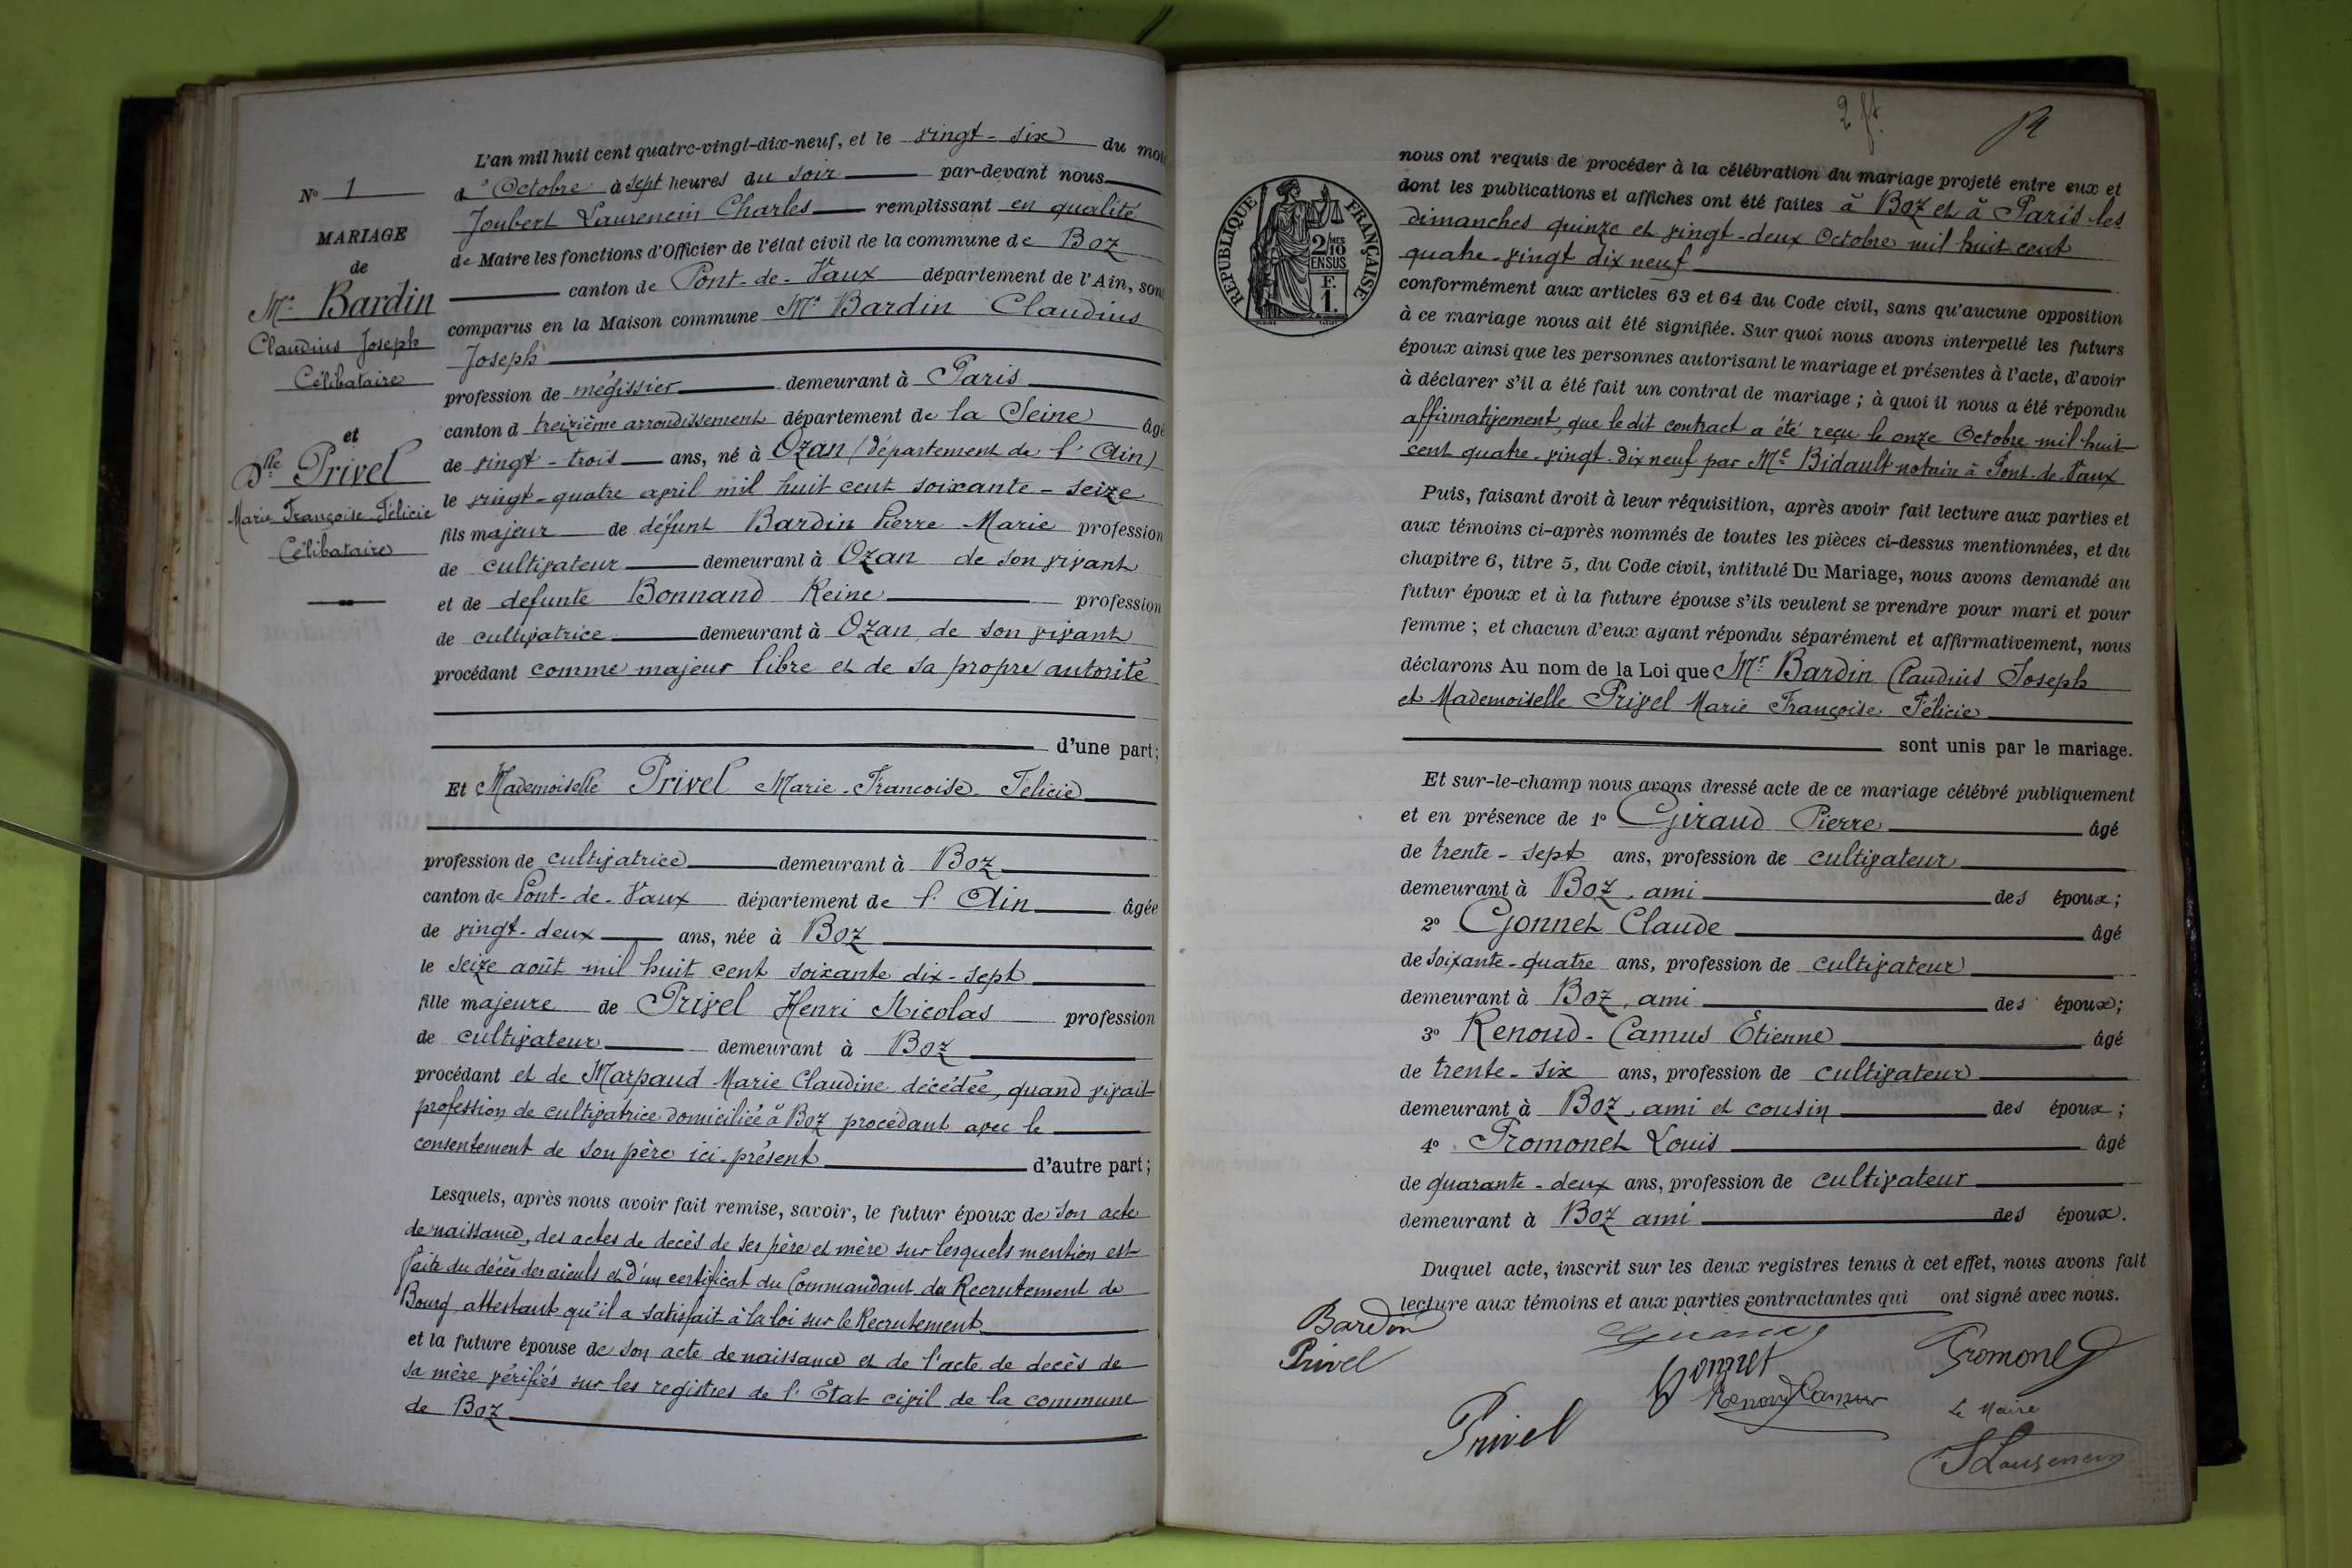 N° 1
MARIAGE
de
Mr Bardin
Claudius Joseph
Célibataire
et
Dlle Privel
Marie Françoise Félicie
Célibataire
L'an mil huit cent quatre-vingt-dix-neuf, et le vingt-six du mois
d'Octobre à sept heures du soir par-devant nous
Joubert Laurencin Charles remplissant en qualité
de Maire les fonctions d'Officier de l'état civil de la commune de Boz
canton de Pont-de-Vaux département de l'Ain, sont
comparus en la Maison commune Mr Bardin Claudius
Joseph
profession de mégissier demeurant à Paris
canton d treizième arrondissement département de la Seine âgé
de vingt-trois ans, né à Ozan (département de l'Ain)
le vingt-quatre avril mil huit cent soixante-seize
fils majeur de défunt Bardin Pierre Marie profession
de cultivateur demeurant à Ozan de son vivant
et de defunte Bonnand Reine profession
de cultivatrice demeurant à Ozan de son vivant
procédant comme majeur libre et de sa propre autorité
d'une part;
Et Mademoiselle Privel Marie-Francoise-Félicie
profession de cultivatrice demeurant à Boz
canton de Pont-de-Vaux département de l'Ain âgée
de vingt-deux ans, née à Boz
le seize août mil huit cent soixante dix-sept
fille majeure de Privel Henri Nicolas profession
de cultivateur demeurant à Boz
procédant et de Marpaud Marie Claudine décédée, quand vivait
profession de cultivatrice domiciliée à Boz procédant avec le
consentement de son père ici présent d'autre part;
Lesquels, après nous avoir fait remise, savoir, le futur époux de son acte
de naissance, des actes de decès de ses père et mère sur lesquels mention est
faite du décès des aïeuls et d'un certificat du Commandant du Recrutement de
Bourg attestant qu'il a satisfait à la loi sur le Recrutement
et la future épouse de son acte de naissance et de l'acte de decès de
sa mère vérifiés sur les registres de l'Etat civil de la commune
de Boz
2 ft
RÉPUBLIQUE FRANÇAISE
2/10 MES
EN SUS
F.
1.
nous ont requis de procéder à la célébration du mariage projeté entre eux et
dont les publications et affiches ont été faites à Boz et à Paris les
dimanches quinze et vingt-deux Octobre mil huit cent
quatre-vingt dix neuf
conformément aux articles 63 et 64 du Code civil, sans qu'aucune opposition
à ce mariage nous ait été signifiée. Sur quoi nous avons interpellé les futurs
époux ainsi que les personnes autorisant le mariage et présentes à l'acte, d'avoir
à déclarer s'il a été fait un contrat de mariage; à quoi il nous a été répondu
affirmativement, que le dit contract a été reçu le onze Octobre mil huit
cent quatre-vingt-dix neuf par Me Bidault notaire à Pont-de-Vaux
Puis, faisant droit à leur réquisition, après avoir fait lecture aux parties et
aux témoins ci-après nommés de toutes les pièces ci-dessus mentionnées, et du
chapitre 6, titre 5, du Code civil, intitulé Du Mariage, nous avons demandé au
futur époux et à la future épouse s'ils veulent se prendre pour mari et pour
femme; et chacun d'eux ayant répondu séparément et affirmativement, nous
déclarons Au nom de la Loi que Mr Bardin Claudius Joseph
et Mademoiselle Privel Marie Françoise Félicie
sont unis par le mariage.
Et sur-le-champ nous avons dressé acte de ce mariage célébré publiquement
et en présence de 1° Giraud Pierre âgé
de trente-sept ans, profession de cultivateur
demeurant à Boz, ami des époux;
2° Gonnet Claude âgé
de soixante-quatre ans, profession de cultivateur
demeurant à Boz, ami des époux;
3° Renoud-Camus Étienne âgé
de trente-six ans, profession de cultivateur
demeurant à Boz, ami et cousin des époux;
4° Promonet Louis âgé
de quarante-deux ans, profession de cultivateur
demeurant à Boz ami des époux.
Duquel acte, inscrit sur les deux registres tenus à cet effet, nous avons fait
lecture aux témoins et aux parties contractantes qui ont signé avec nous.
Bardin
Giraud
Promonet
Privel
Gonnet
Renoud Camus
Le Maire
Privel
J Laurencin